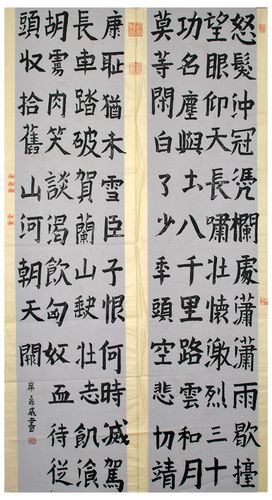 怒髮沖冠凴欄處瀟瀟雨歇擡
望眼仰天長嘯壯懷激烈三十
功名塵與土八千里路雲和月
莫等閒白了少年頭空悲切靖
康耻猶未雪臣子恨何時滅駕
長車踏破賀蘭山缺壯志飢湌
胡虜肉笑談渴飲匈奴血待從
頭収拾舊山河朝天闕